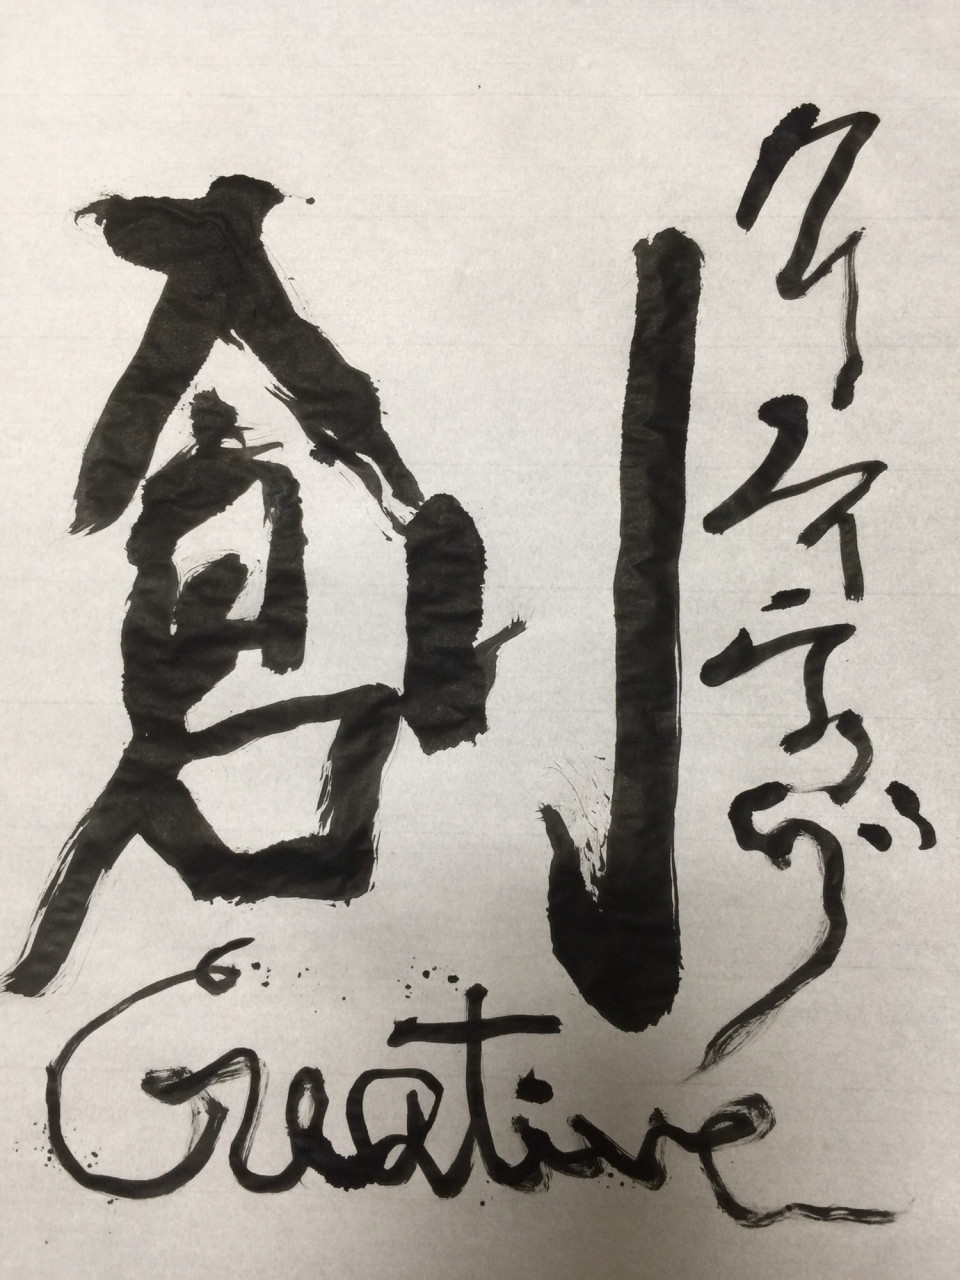 創
クリエイティブ
Creative